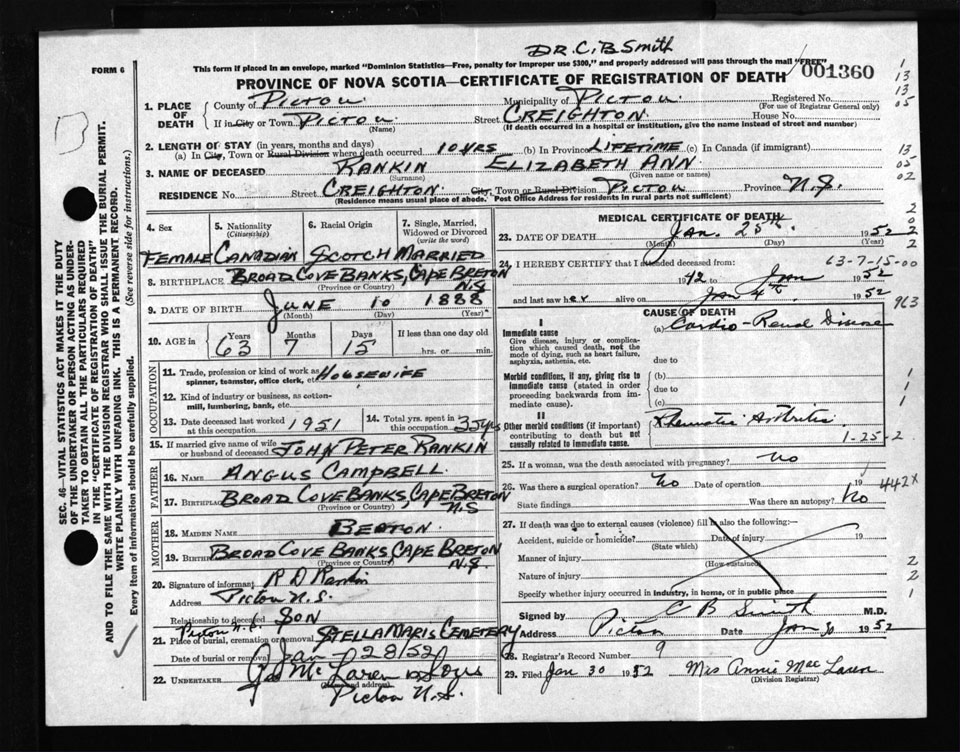 DR. C. B Smith
FORM 6
This form if placed in an envelope, marked "Dominion Statistics—Free, penalty for improper use $300," and properly addressed will pass through the mail "FREE"
PROVINCE OF NOVA SCOTIA—CERTIFICATE OF REGISTRATION OF DEATH
001360
1. PLACE OF DEATH
County of PICTOU Municipality of PICTOU Registered No.
(For use of Registrar General only)
If in City or Town PICTOU Street CREIGHTON House No.
(Name) (If death occurred in a hospital or institution, give the name instead of street and number)
2. LENGTH OF STAY (in years, months and days)
(a) In City, Town or Rural Division where death occurred 10 YRS (b) In Province LIFETIME (c) In Canada (if immigrant)
3. NAME OF DECEASED RANKIN ELIZABETH ANN
(Surname) (Given name or names)
RESIDENCE No. Street CREIGHTON City, Town or Rural Division PICTOU Province N.S.
(Residence means usual place of abode. Post Office Address for residents in rural parts not sufficient)
4. Sex
5. Nationality (Citizenship)
6. Racial Origin
7. Single, Married, Widowed or Divorced (write the word)
FEMALE CANADIAN SCOTCH MARRIED
8. BIRTHPLACE BROAD COVE BANKS, CAPE BRETON N.S.
(Province or Country)
9. DATE OF BIRTH JUNE 10 1888
(Month) (Day) (Year)
10. AGE in Years Months Days If less than one day old
63 7 15 hrs. or min.
OCCUPATION
11. Trade, profession or kind of work as spinner, teamster, office clerk, etc. HOUSEWIFE
12. Kind of industry or business, as cotton-mill, lumbering, bank, etc.
13. Date deceased last worked at this occupation 1951
14. Total yrs. spent in this occupation 35 yrs
15. If married give name of wife or husband of deceased JOHN PETER RANKIN
FATHER
16. NAME ANGUS CAMPBELL
17. BIRTHPLACE BROAD COVE BANKS, CAPE BRETON N.S
(Province or Country)
MOTHER
18. MAIDEN NAME BEATON
19. BIRTHPLACE BROAD COVE BANKS, CAPE BRETON N.S.
20. Signature of informant R D Rankin
Address Pictou N.S.
Relationship to deceased SON
Pictou N.S.
21. Place of burial, cremation or removal STELLA MARIS CEMETERY
Date of burial or removal Jan 28/52
22. UNDERTAKER Geo McLaren & Sons
Pictou N.S.
MEDICAL CERTIFICATE OF DEATH
23. DATE OF DEATH Jan. 25th 1952
(Month) (Day) (Year)
63-7-15-00
24. I HEREBY CERTIFY that I attended deceased from:
1942 to Jan 1952
and last saw her alive on Jan 4th 1952
963
CAUSE OF DEATH
I
Immediate cause
Give disease, injury or complication which caused death, not the mode of dying, such as heart failure, asphyxia, asthenia, etc.
(a) Cardio-Renal Disease
due to
Morbid conditions, if any, giving rise to immediate cause (stated in order proceeding backwards from immediate cause).
(b)
due to
(c)
II
Other morbid conditions (if important) contributing to death but not causally related to immediate cause.
Rheumatic Arthritis
1-25-2
25. If a woman, was the death associated with pregnancy? no
26. Was there a surgical operation? No Date of operation 19
442X
State findings Was there an autopsy? No
27. If death was due to external causes (violence) fill in also the following:—
Accident, suicide or homicide? Date of injury 19
(State which)
Manner of injury
(How sustained)
Nature of injury
Specify whether injury occurred in industry, in home, or in public place
Signed by C B Smith M.D.
Address Pictou Date Jan 30 1952
28. Registrar's Record Number 9
29. Filed Jan 30 1952 Mrs Annie MacLaren
(Division Registrar)
SEC. 46—VITAL STATISTICS ACT MAKES IT THE DUTY
OF THE UNDERTAKER OR PERSON ACTING AS UNDERTAKER TO OBTAIN ALL THE PARTICULARS REQUIRED
IN THE "CERTIFICATE OF REGISTRATION OF DEATH"
AND TO FILE THE SAME WITH THE DIVISION REGISTRAR WHO SHALL ISSUE THE BURIAL PERMIT.
WRITE PLAINLY WITH UNFADING INK. THIS IS A PERMANENT RECORD.
Every item of information should be carefully supplied. (See reverse side for instructions.)
1
13
13
05
13
05
02
2
0
2
2
1
1
1
2
2
1